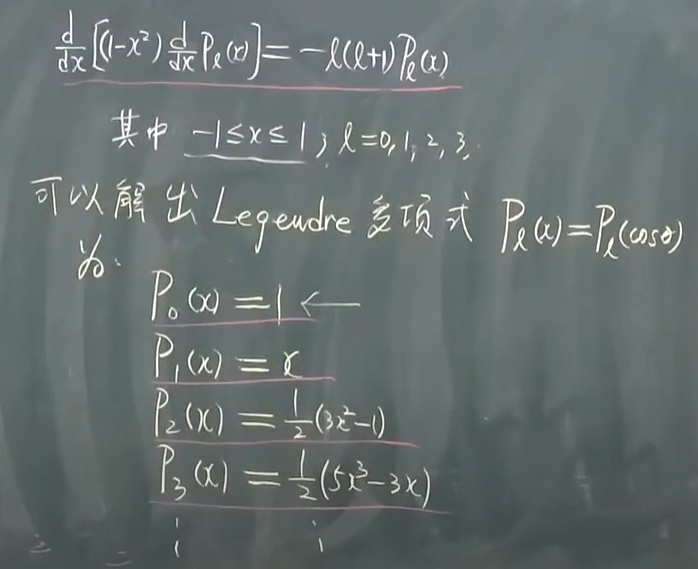 d/dx[(1-x²) d/dx Pℓ(x)] = -ℓ(ℓ+1)Pℓ(x)
其中 -1≤x≤1; ℓ=0,1,2,3,
可以解出Legendre多项式 Pℓ(x)=Pℓ(cosθ)
为:
P₀(x)=1 ←
P₁(x)=x
P₂(x)=1/2(3x²-1)
P₃(x)=1/2(5x³-3x)
⋮ ⋮